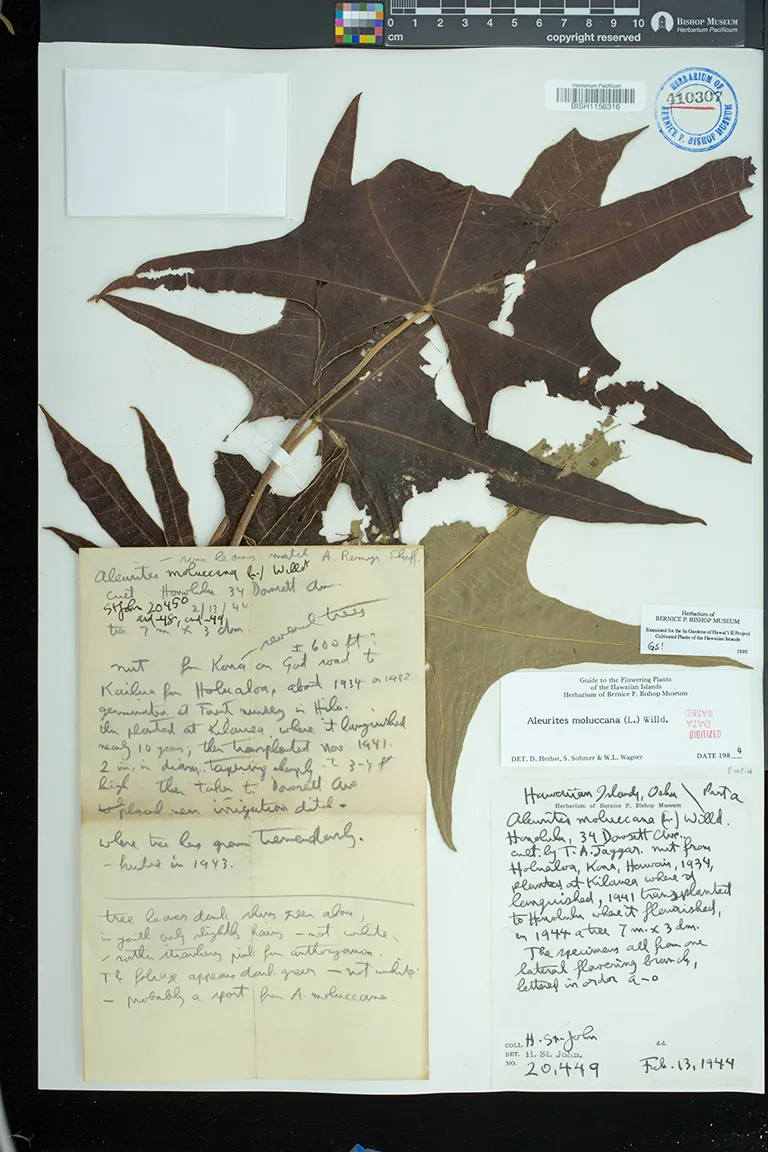 0 1 2 3 4 5 6 7 8 9 10
cm
copyright reserved
BISHOP MUSEUM
Herbarium Pacificum
Herbarium Pacificum
BISH1156316
HERBARIUM OF
410307
BERNICE P. BISHOP MUSEUM
— some leaves match A. Remyi Sherff.
Aleurites moluccana (L.) Willd
cult. Honolulu 34 Dowsett Ave
St John 20450 2/13/44
tree 7 m x 3 dm.
several trees
± 600 ft?
nut fr. Kona on Gov't road to
Kailua fr. Holualoa, about 1934 or 1932
germinated at Forest nursery in Hilo.
then planted at Kilauea, where it languished
nearly 10 years; then transplanted Nov. 1941.
2 in. in diam. tapering sharply - 3-4 ft
high. Then taken to Dowsett Ave.
placed near irrigation ditch.
where tree has grown tremendously.
- fruited in 1943.
tree leaves dark shiny green above,
in youth only slightly hairy - not white,
rather strawberry pink from anthocyanin.
The foliage appears dark green — not white.
— probably a sport from A. moluccana.
Herbarium of
BERNICE P. BISHOP MUSEUM
Examined for the In Gardens of Hawai'i II Project
Cultivated Plants of the Hawaiian Islands
GS! 1995
Guide to the Flowering Plants
of the Hawaiian Islands
Herbarium of Bernice P. Bishop Museum
Aleurites moluccana (L.) Willd.
DATA
BASED
DET. D. Herbst, S. Sohmer & W.L. Wagner DATE 1984
Hawaiian Islands, Oahu Part a
Herbarium of Bernice P. Bishop Museum
Aleurites moluccana (L.) Willd.
Honolulu, 34 Dowsett Ave.
cult. by T. A. Jaggar. nut from
Holualoa, Kona, Hawaii, 1934,
planted at Kilauea where it
languished, 1941 transplanted
to Honolulu where it flourished,
in 1944 a tree 7 m. x 3 dm.
The specimens all from one
lateral flowering branch,
lettered in order a-o
COLL. H. St. John
DET. H. St. John.
NO. 20,449 Feb. 13, 1944